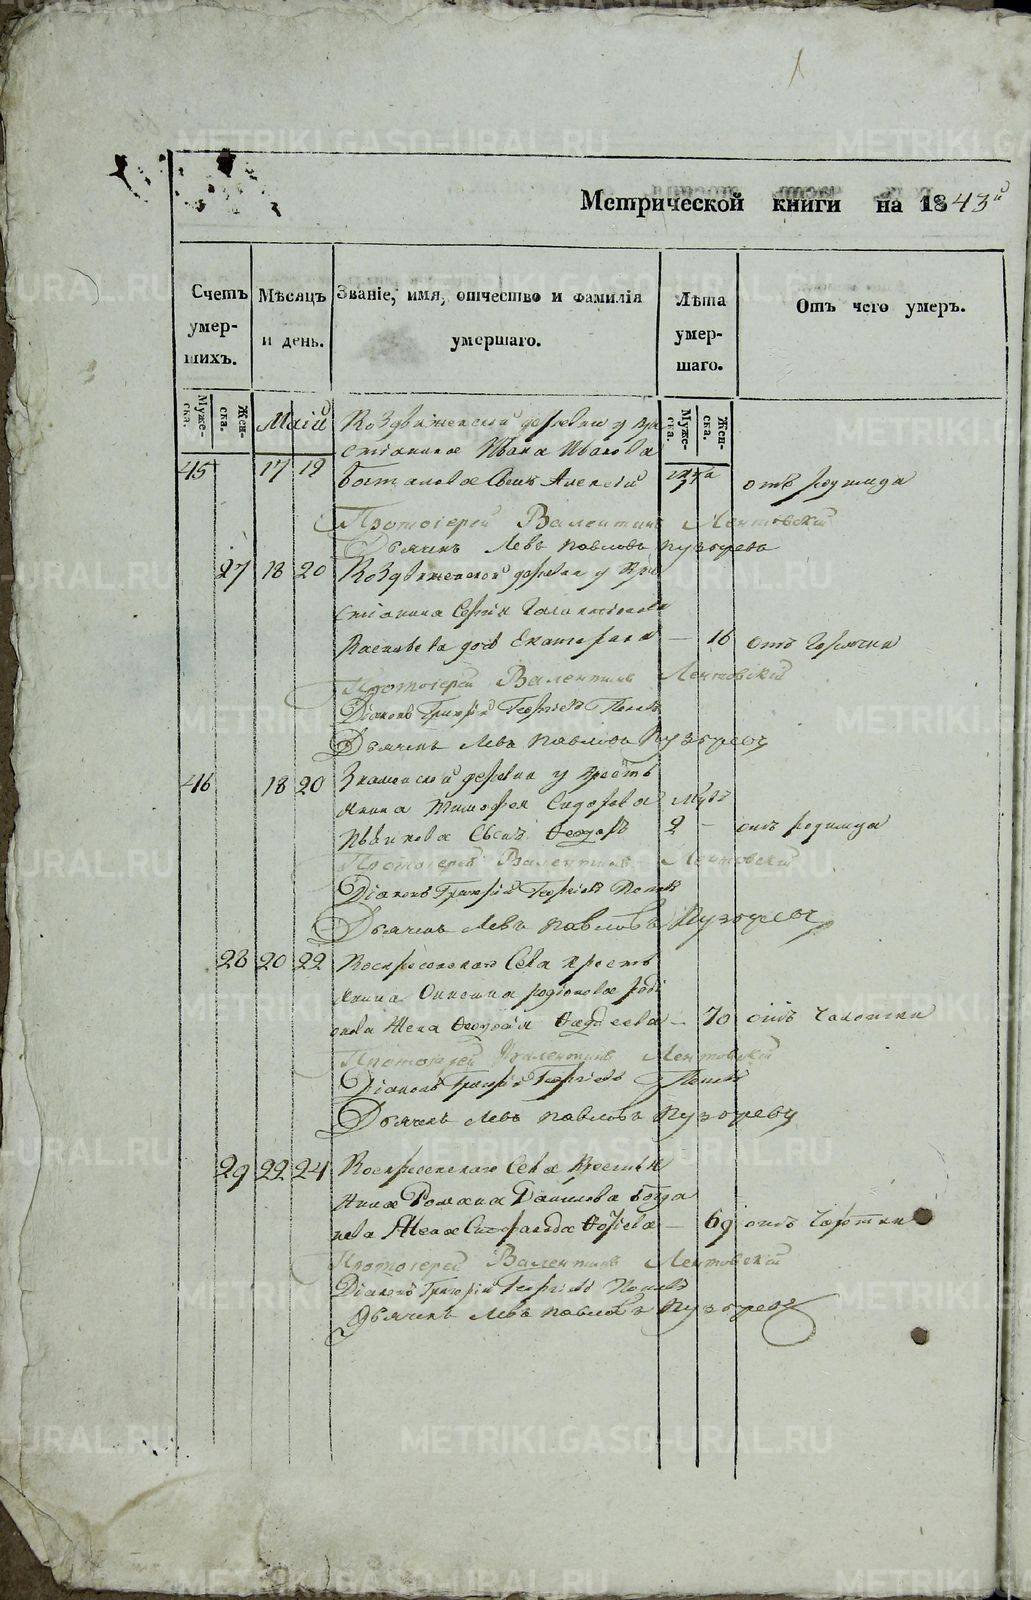 Метрической книги на 1843й
Счетъ умер- шихъ.
Мѣсяцъ и день.
Званіе, имя, отчество и фамилія умершаго.
Лѣта умер- шаго.
Отъ чего умеръ.
Муже- ска.
Жен- ска.
Муже- ска.
Жен- ска.
Маій
Воздвиженской деревни у кре
стьянина Ивана Иванова
45 17 19 Сынъ Алексѣй отъ родимца
Протоіерей Валентинъ Лентовскій
Дьячекъ Левъ Павловъ Пузыревъ
27 18 20 Воздвиженской деревни у Кре
стіанина Сергія
дочь Екатерина — 16 отъ Горячки
Протоіерей Валентинъ Лентовскій
Діаконъ Григорій Георгіевъ Поповъ
Дьячекъ Левъ Павловъ Пузыревъ
46 18 20 Знаменской деревни у Крестъ
янина Тимофея Сидорова
Сынъ Ѳеодоръ 2 — отъ родимца
Протоіерей Валентинъ Лентовскій
Діаконъ Григорій Георгіевъ Поповъ
Дьячекъ Левъ Павловъ Пузыревъ
28 20 22 Воскресенскаго Села Крестъ
янина родіонова
Жена Ѳеодосія Ѳаддеева — 70 отъ Чахотки
Протоіерей Валентинъ Лентовскій
Діаконъ Григорій Георгіевъ Поповъ
Дьячекъ Левъ Павловъ Пузыревъ
29 22 24 Воскресенскаго Села Крестьян
ина Романа Данилова Богда
нова Жена — 69 отъ Горячки
Протоіерей Валентинъ Лентовскій
Діаконъ Григорій Георгіевъ Поповъ
Дьячекъ Левъ Павловъ Пузыревъ
METRIKI.GASO-URAL.RU